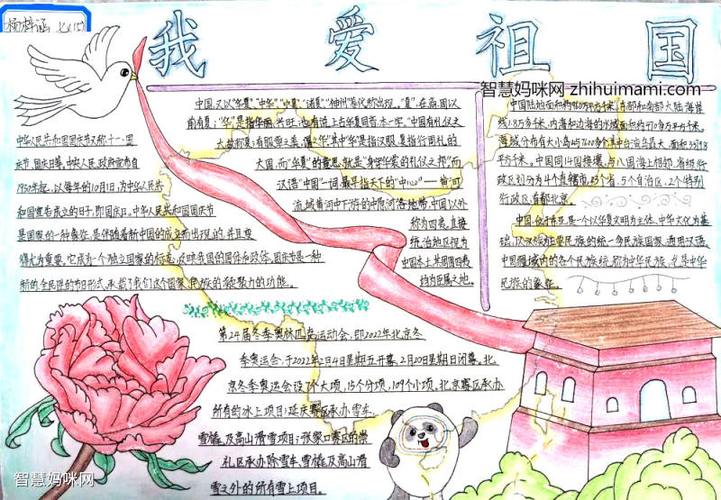 杨梓涵 七(5)
我爱祖国
智慧妈咪网 zhihuimami.com
中华人民共和国国庆节又称十一、国
庆节、国庆日等，中央人民政府宣布自
1950年起，以每年的10月1日，为中华人民共
和国宣告成立的日子，即国庆日。中华人民共和国国庆节
是国家的一种象征，是伴随着新中国的成立而出现的，并且变
得尤为重要。它成为一个独立国家的标志，反映我国的国体和政体。国庆节是一种
新的全民性的节日形式，承载了我们这个国家、民族的凝聚力的功能。
中国，又以"华夏"、"中华"、"中夏"、"诸夏"、"神州"等代称出现。
前有夏；"华"是指华丽、兴旺；也有说上古华夏
大故称夏；
国，而"华夏"的意思，就是"身穿华裳的礼仪之邦"而
汉语"中国"一词，最早指天下的"中心"——黄河
流域黄河中下游的中原河洛地带，中国以外
称为四夷，直接
统治地区视为
中国本土其周围四裔
约为臣属之地。
中国陆地面积约960万平方千米，东部和南部大陆海岸
线1.8万多千米，内海和边海的水域面积约470多万平方千米。
海域分布有大小岛屿7600多个，其中台湾岛最大，面积35798
平方千米。中国同14国接壤，与八国海上相邻。省级行
政区划分为4个直辖市，23个省，5个自治区，2个特别
行政区，首都北京。
中国，位于东亚，是一个以华夏文明为主体、中华文化为基
础，以汉族为主要民族的统一多民族国家，通用汉语。
中国疆域内的各个民族统称为中华民族，龙是中华
民族的象征。
第24届冬季奥林匹克运动会，即2022年北京冬
季奥运会，于2022年2月4日星期五开幕，2月20日星期日闭幕。北
京冬季奥运会设7个大项，15个分项，109个小项。北京赛区承办
所有的冰上项目；延庆赛区承办雪车、
雪橇及高山滑雪项目；张家口赛区的崇
礼区承办除雪车、雪橇及高山滑
雪之外的所有雪上项目。
智慧妈咪网